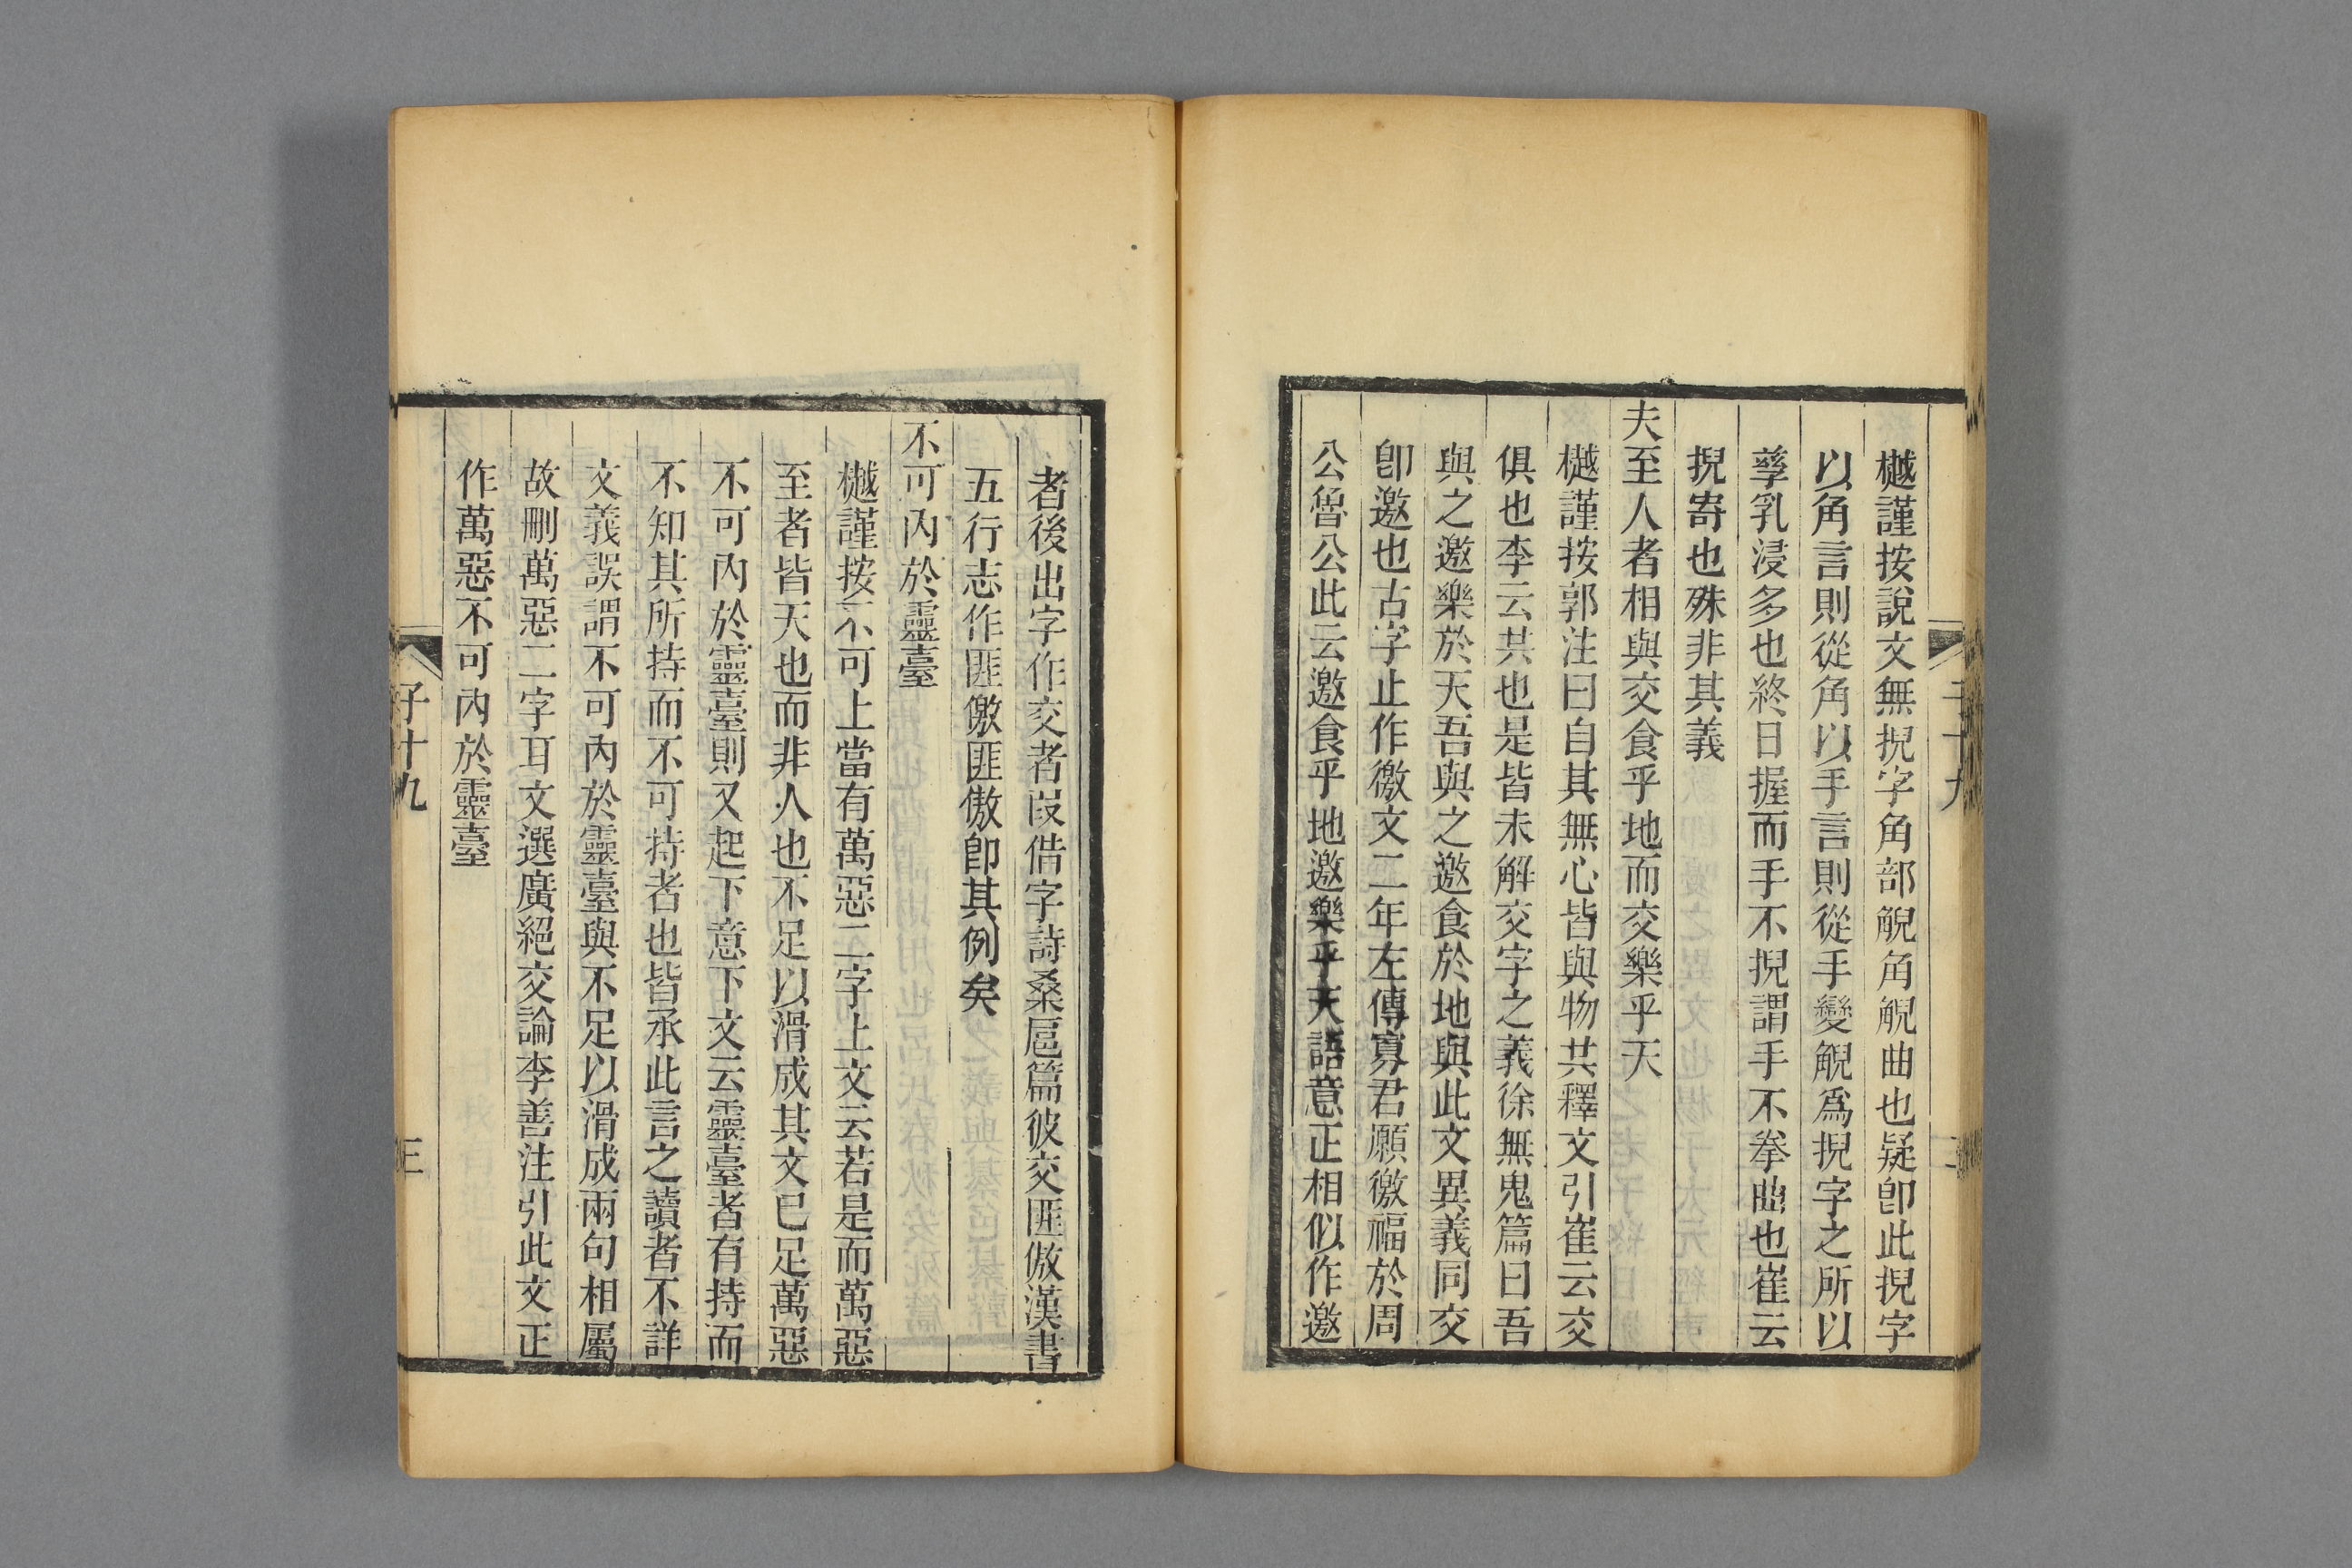 樾謹按說文無掜字角部觬角觬曲也疑卽此掜字
以角言則從角以手言則從手變觬爲掜字之所以
孳乳浸多也終日握而手不掜謂手不拳曲也崔云
掜寄也殊非其義
夫至人者相與交食乎地而交樂乎天
樾謹按郭注曰自其無心皆與物共釋文引崔云交
俱也李云共也是皆未解交字之義徐無鬼篇曰吾
與之邀樂於天吾與之邀食於地與此文異義同交
卽邀也古字止作徼文二年左傳寡君願徼福於周
公魯公此云邀食乎地邀樂乎天語意正相似作邀
者後出字作交者叚借字詩桑扈篇彼交匪傲漢書
五行志作匪儌匪傲卽其例矣
不可內於靈臺
樾謹按不可上當有萬惡二字上文云若是而萬惡
至者皆天也而非人也不足以滑成其文已足萬惡
不可內於靈臺則又起下意下文云靈臺者有持而
不知其所持而不可持者也皆承此言之讀者不詳
文義誤謂不可內於靈臺與不足以滑成兩句相屬
故刪萬惡二字耳文選廣絕交論李善注引此文正
作萬惡不可內於靈臺
子十九
三